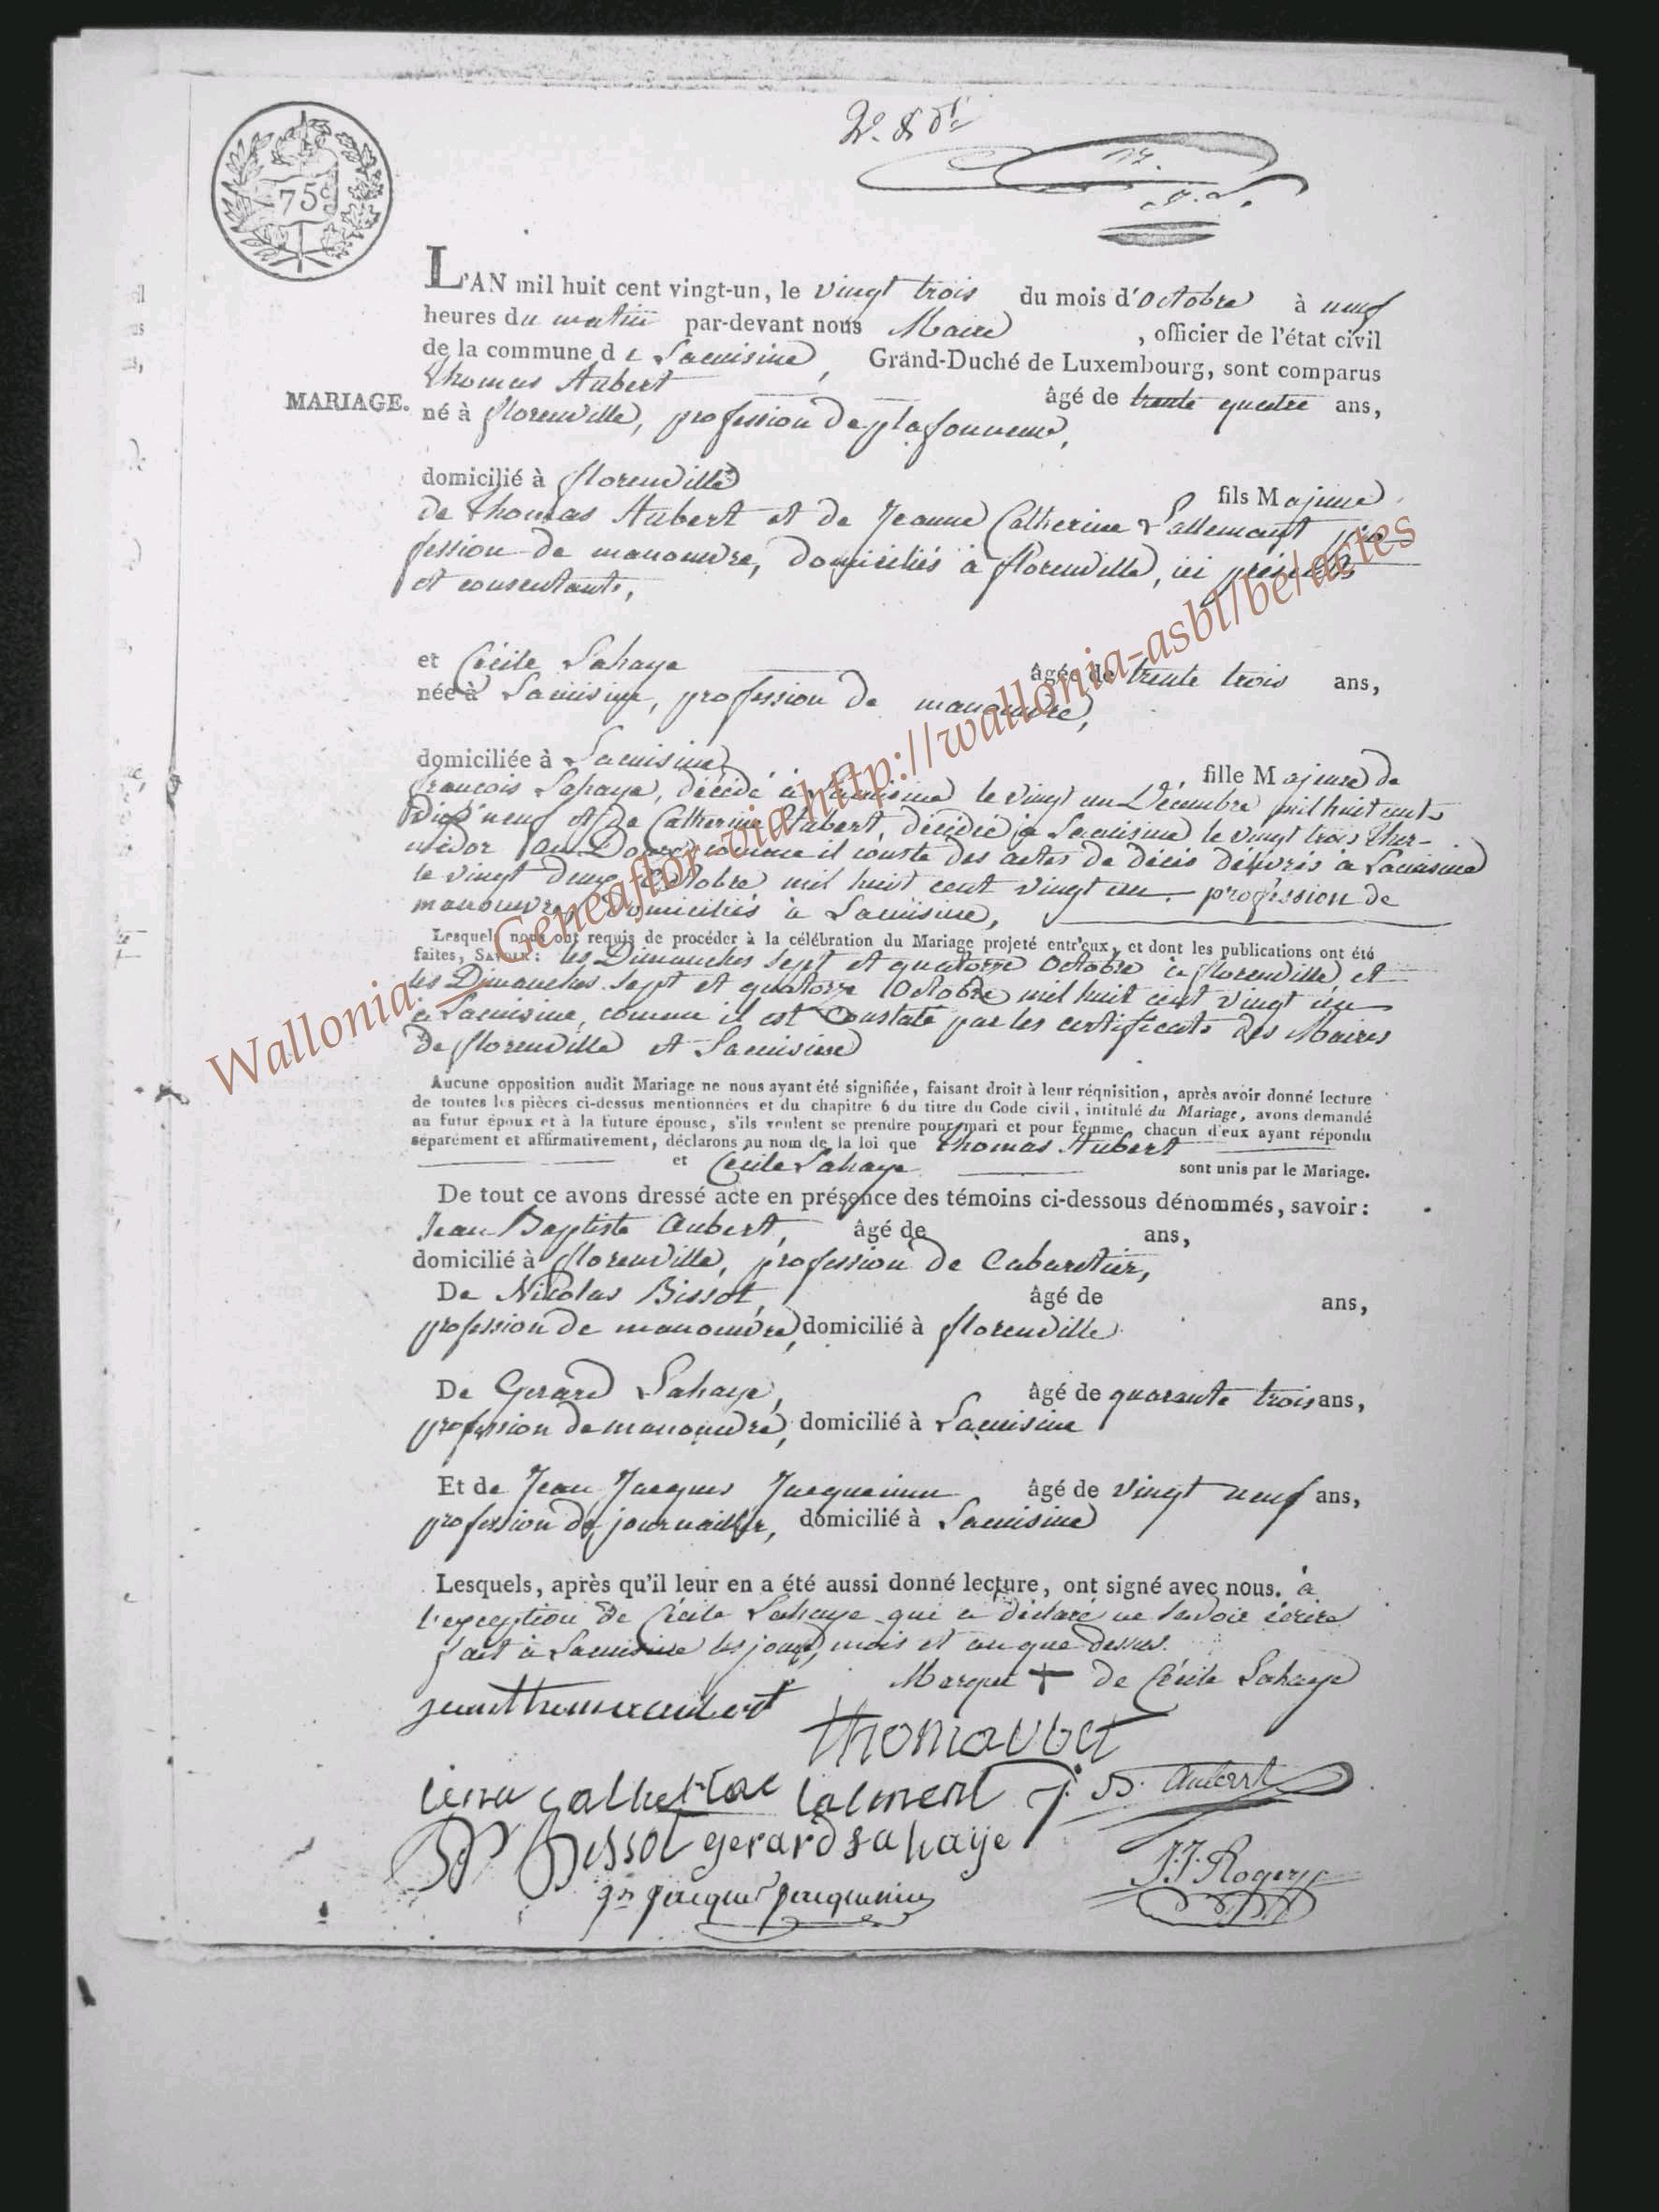 2e. & dr
14.
75 c
L'AN mil huit cent vingt-un, le vingt trois du mois d'octobre à neuf
heures du matin par-devant nous Maire , officier de l'état civil
de la commune de Lacuisine, Grand-Duché de Luxembourg, sont comparus
Thomas Aubert âgé de trente quatre ans,
MARIAGE.
né à florenville, profession de plafonneur,
domicilié à florenville fils Majeur
de Thomas Aubert et de Jeanne Catherine Lallemant pro-
fession de manouvre, domiciliés à florenville, ici présents
et consentants,
et Cécile Lahaye âgée de trente trois ans,
née à Lacuisine, profession de manouvre,
domiciliée à Lacuisine fille Majeure de
françois Lahaye, décédé à Lacuisine le vingt un Décembre mil huit cent
Dix neuf et de Catherine Aubert, décédée à Lacuisine le vingt trois ther-
midor an Douze comme il conste des actes de décès délivrés à Lacuisine
le vingt deux Octobre mil huit cent vingt un. profession de
manouvre, domiciliés à Lacuisine,
Lesquels nous ont requis de procéder à la célébration du Mariage projeté entr'eux, et dont les publications ont été
faites, SAVOIR : les Dimanches sept et quatorze Octobre à florenville, et
les Dimanches sept et quatorze Octobre mil huit cent vingt un
à Lacuisine, comme il est Constaté par les certificats des Maires
de florenville et Lacuisine
Aucune opposition audit Mariage ne nous ayant été signifiée, faisant droit à leur réquisition, après avoir donné lecture
de toutes les pièces ci-dessus mentionnées et du chapitre 6 du titre du Code civil, intitulé du Mariage, avons demandé
au futur époux et à la future épouse, s'ils veulent se prendre pour mari et pour femme, chacun d'eux ayant répondu
séparément et affirmativement, déclarons au nom de la loi que Thomas Aubert
et Cécile Lahaye sont unis par le Mariage.
De tout ce avons dressé acte en présence des témoins ci-dessous dénommés, savoir :
Jean Baptiste Aubert, âgé de ans,
domicilié à florenville, profession de Cabaretier,
De Nicolas Bissot, âgé de ans,
profession de manouvre, domicilié à florenville
De Gerard Lahaye, âgé de quarante trois ans,
profession de manouvre, domicilié à Lacuisine
Et de Jean Jacques Jacqueminn âgé de vingt neuf ans,
profession de journailler, domicilié à Lacuisine
Lesquels, après qu'il leur en a été aussi donné lecture, ont signé avec nous. à
l'exception de Cécile Lahaye qui a déclaré ne savoir écrire
fait à Lacuisine les jour, mois et an que dessus.
Marque + de Cécile Lahaye
jeanthomaaubert
thomaubet
jenne catherinne lalment J. B. Aubert
Bissot gerard Lahaije
jn jacque jacqueminn
J.J. Rogery
Wallonia - Geneaflor via http://wallonia-asbl/be/actes